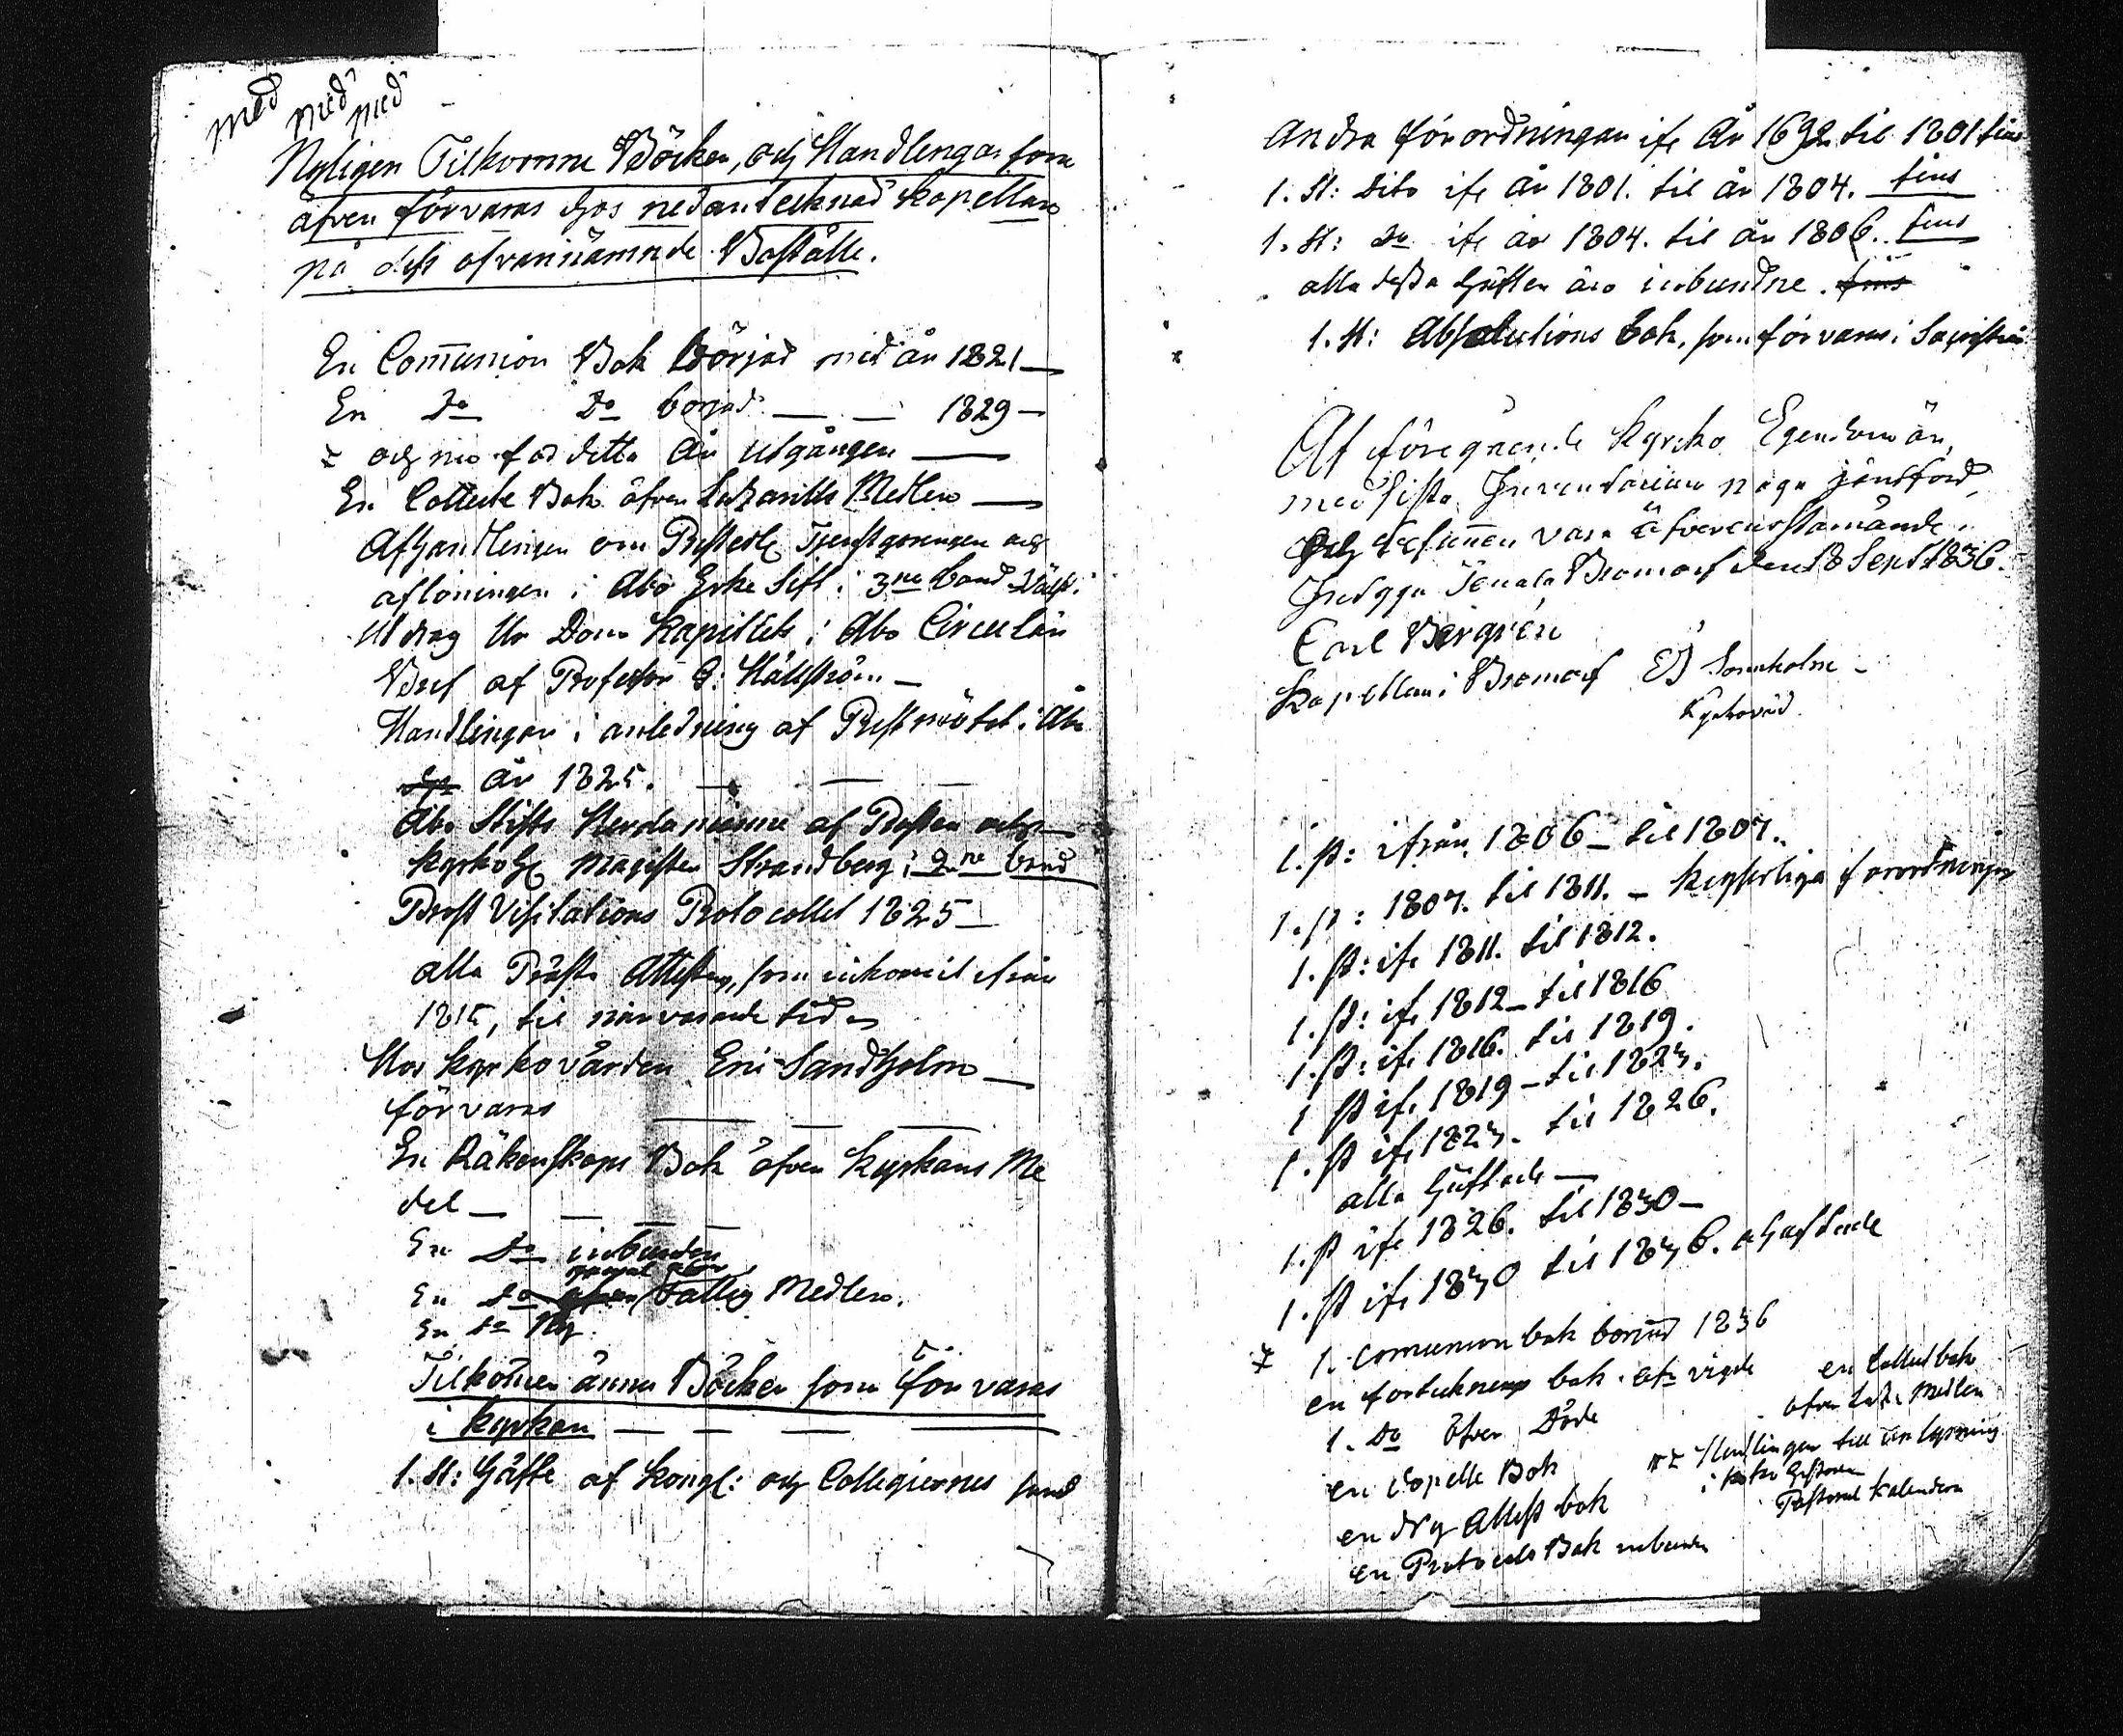 med med med
Nyligen Tilkomne Böcker, och Handlingar som
äfven förvaras hos nedantecknad Kapellan
på dess ofvannämnde Boställe.
En Com̄union Bok Börjad med år 1821
En Do Do börjad 1829
och med detta år utgången
En Collecte Bok öfver Medlen
Afhandlingen om Presterl Tjenstgöringen och
aflöningen i Åbo Erke Stift i 3ne band
Utdrag Ur Dom Kapitlets i Åbo Circulär
Bref af Professor G: Hällström
Handlingar i anledning af Prestmötet i Åbo
år 1825.
Åbo Stifts Herdaminne af Prosten och
Kyrkoh Magister Strandberg i 2ne band
Prost Visitations Protocollet 1825
alla Prästa Attester, som inkommit ifrån
1815, til närvarande tid
Hos Kyrkovärden Eric Sandholm
förvaras
En Räkenskaps Bok öfver Kyrkans Me
del
En Do inbunden
En Do Fattig Medlen.
En Do Ny
Tilkom̄er ännu Böcker som förvaras
i Kyrkan
1. St: Häfte af Kongl: och Collegiernes samt
Andra förordningar ifr År 1692 til 1801 fins
1. St: Dito ifr år 1801. til år 1804. fins
1. St: Do ifr år 1804. til år 1806. fins
alla dessa Häften äro inbundne. fins
1. St: Absolutions bok, som förvaras i Sacristian
At föregående Kyrko Egendom är,
med sista Inventarium noga jämförd,
och befun̄en vara öfverensstämande,
Intyga Tenala Bromarf den 18 Sept 1836.
Carl Bergrén
Kapellan i Bromarf
Kyrkovärd
1. st: ifrån 1806 til 1807.
1. st: 1807. til 1811. Kejserliga förordningar
1. st: ifr 1811. til 1812.
1. st: ifr 1812 til 1816
1. st: ifr 1816. til 1819.
1 st ifr 1819 til 1823.
1. st ifr 1823. til 1826.
alla Häftade
1. st ifr 1826. til 1830
1. st ifr 1830 til 1836. ohäftade
1. Comunion bok börjad 1836
en fortecknings bok. öfr vigde
1. Do öfver Döde
en Copelle Bok
en Ny Attest bok
en Protocols Bok inbunden
en Collect bok
öfver Medlen
Handlingar till uplysning
i
Pastoral Kalendern